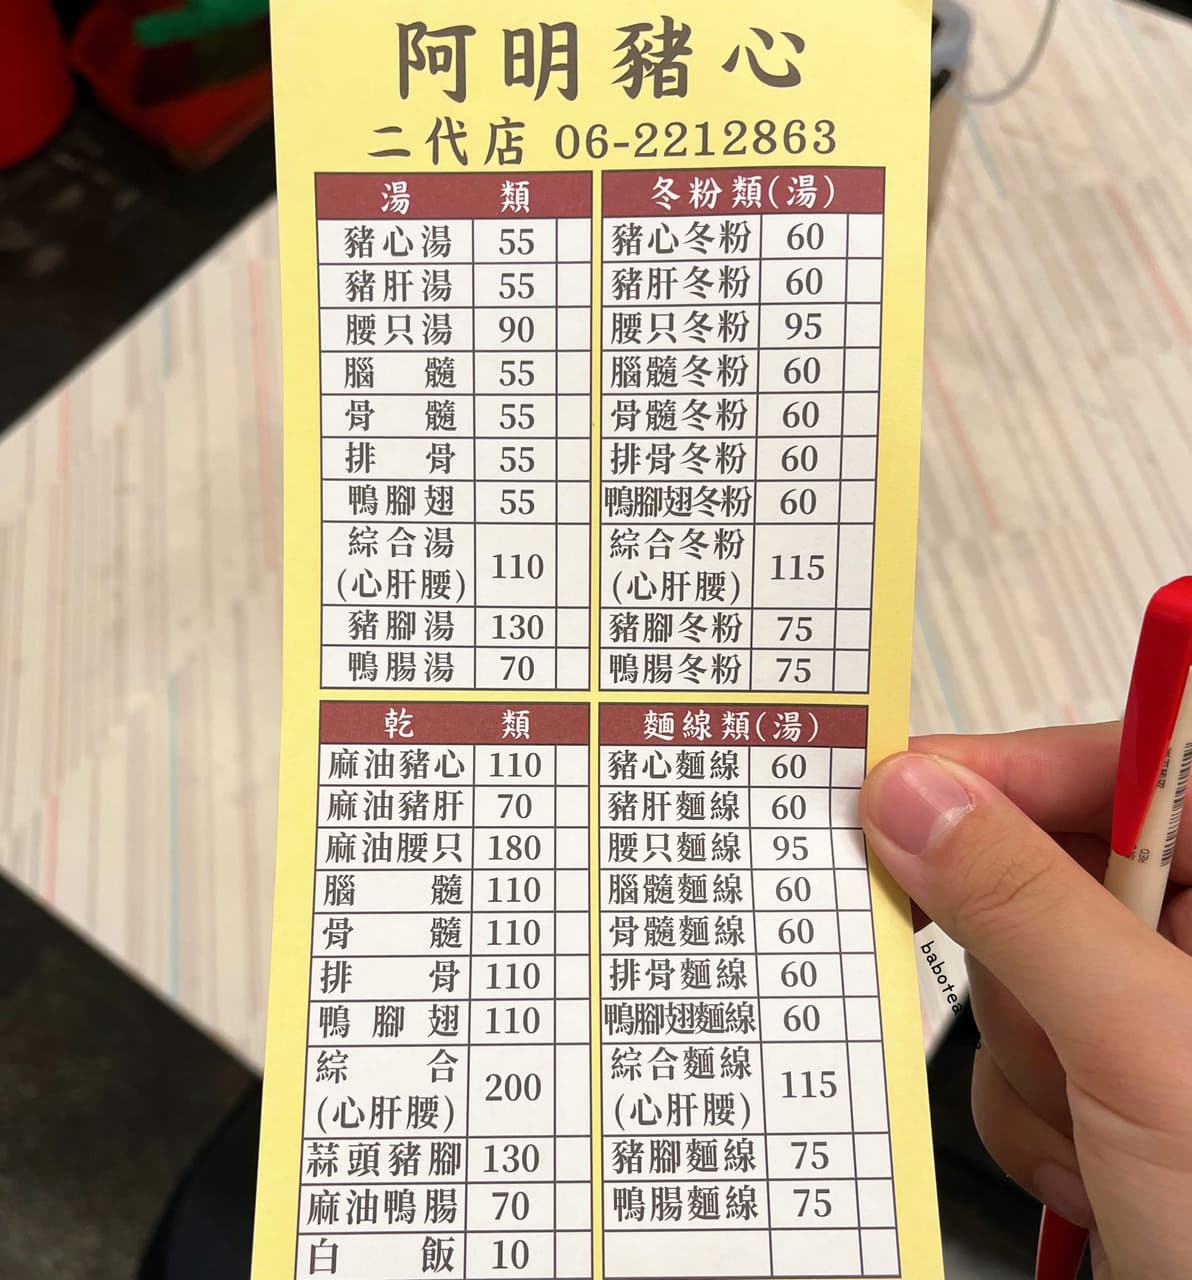 阿明豬心
二代店 06-2212863
湯類
豬心湯 55
豬肝湯 55
腰只湯 90
腦髓 55
骨髓 55
排骨 55
鴨腳翅 55
綜合湯
(心肝腰) 110
豬腳湯 130
鴨腸湯 70
冬粉類(湯)
豬心冬粉 60
豬肝冬粉 60
腰只冬粉 95
腦髓冬粉 60
骨髓冬粉 60
排骨冬粉 60
鴨腳翅冬粉 60
綜合冬粉
(心肝腰) 115
豬腳冬粉 75
鴨腸冬粉 75
乾類
麻油豬心 110
麻油豬肝 70
麻油腰只 180
腦髓 110
骨髓 110
排骨 110
鴨腳翅 110
綜合
(心肝腰) 200
蒜頭豬腳 130
麻油鴨腸 70
白飯 10
麵線類(湯)
豬心麵線 60
豬肝麵線 60
腰只麵線 95
腦髓麵線 60
骨髓麵線 60
排骨麵線 60
鴨腳翅麵線 60
綜合麵線
(心肝腰) 115
豬腳麵線 75
鴨腸麵線 75